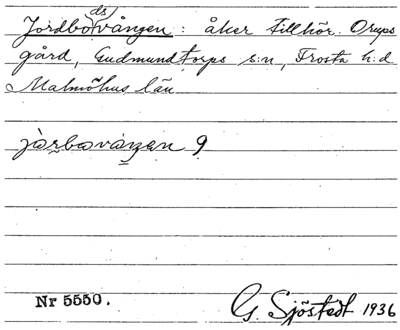 Jordbo(ds)vången: åker tillhör. Orups
gård, Gudmundtorps s:n, Frosta h:d
Malmöhus län
jòrbovàŋen 9
Nr 5550.
G. Sjöstedt 1936